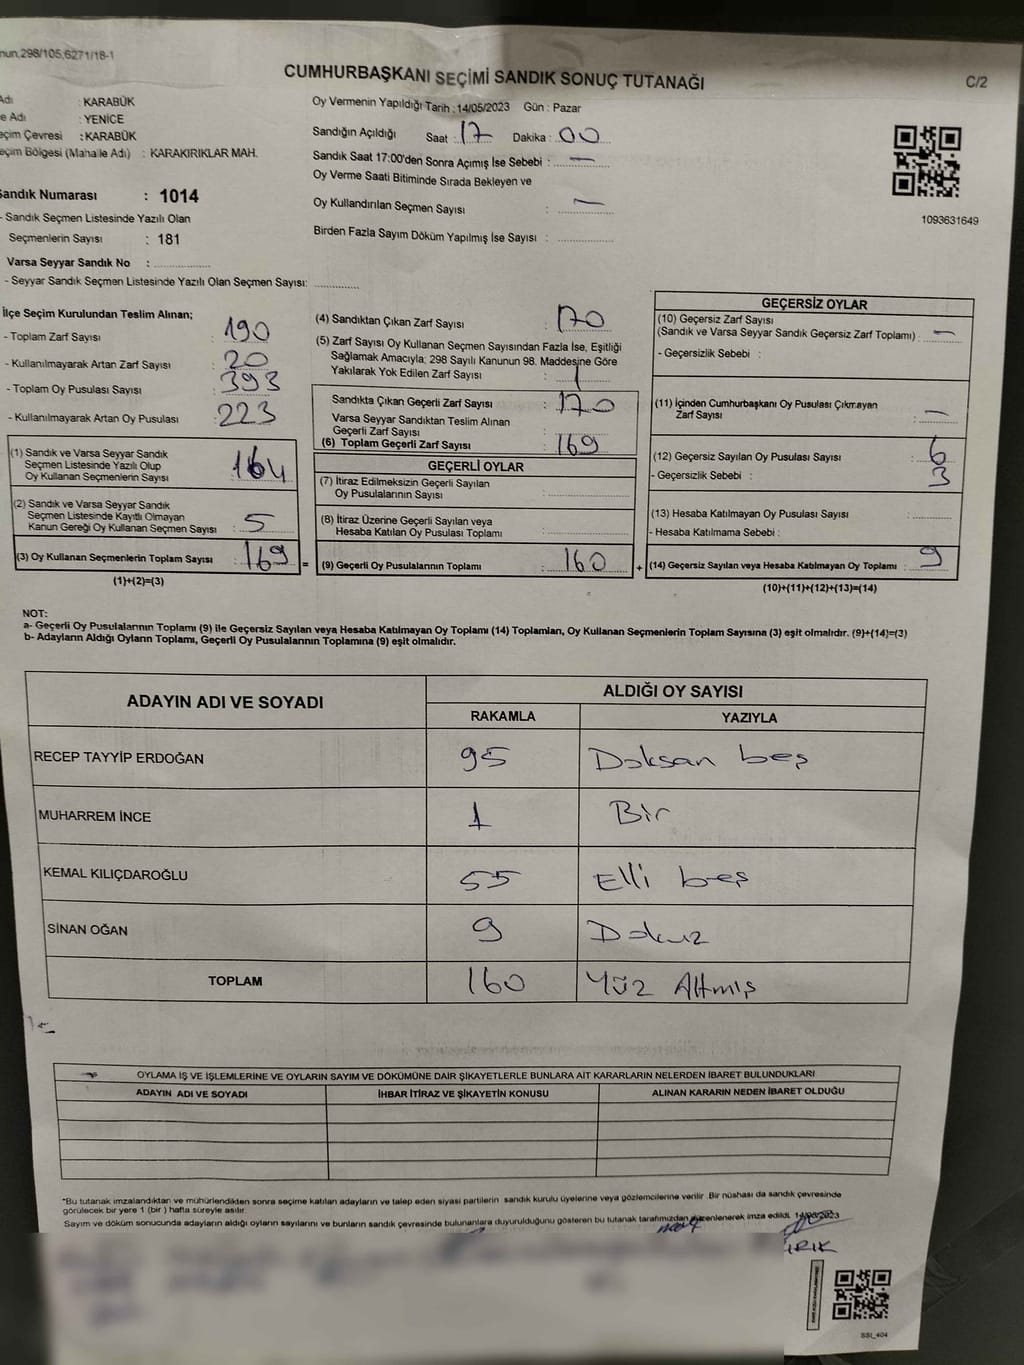 nun,298/105,6271/18-1
CUMHURBAŞKANI SEÇİMİ SANDIK SONUÇ TUTANAĞI
C/2
Adı : KARABÜK
e Adı : YENİCE
eçim Çevresi : KARABÜK
eçim Bölgesi (Mahalle Adı) : KARAKIRIKLAR MAH.
Sandık Numarası : 1014
- Sandık Seçmen Listesinde Yazılı Olan
Seçmenlerin Sayısı : 181
Varsa Seyyar Sandık No :
- Seyyar Sandık Seçmen Listesinde Yazılı Olan Seçmen Sayısı:
Oy Vermenin Yapıldığı Tarih : 14/05/2023 Gün : Pazar
Sandığın Açıldığı Saat : 17 Dakika : 00
Sandık Saat 17:00'den Sonra Açımış İse Sebebi : —
Oy Verme Saati Bitiminde Sırada Bekleyen ve
Oy Kullandırılan Seçmen Sayısı : —
Birden Fazla Sayım Döküm Yapılmış İse Sayısı :
1093631649
İlçe Seçim Kurulundan Teslim Alınan;
- Toplam Zarf Sayısı : 190
- Kullanılmayarak Artan Zarf Sayısı : 20
- Toplam Oy Pusulası Sayısı : 393
- Kullanılmayarak Artan Oy Pusulası : 223
(1) Sandık ve Varsa Seyyar Sandık
Seçmen Listesinde Yazılı Olup
Oy Kullanan Seçmenlerin Sayısı : 164
(2) Sandık ve Varsa Seyyar Sandık
Seçmen Listesinde Kayıtlı Olmayan
Kanun Gereği Oy Kullanan Seçmen Sayısı : 5
(3) Oy Kullanan Seçmenlerin Toplam Sayısı : 169 =
(1)+(2)=(3)
(4) Sandıktan Çıkan Zarf Sayısı : 170
(5) Zarf Sayısı Oy Kullanan Seçmen Sayısından Fazla İse, Eşitliği
Sağlamak Amacıyla; 298 Sayılı Kanunun 98. Maddesine Göre
Yakılarak Yok Edilen Zarf Sayısı : 1
Sandıkta Çıkan Geçerli Zarf Sayısı : 170
Varsa Seyyar Sandıktan Teslim Alınan
Geçerli Zarf Sayısı :
(6) Toplam Geçerli Zarf Sayısı : 169
GEÇERLİ OYLAR
(7) İtiraz Edilmeksizin Geçerli Sayılan
Oy Pusulalarının Sayısı :
(8) İtiraz Üzerine Geçerli Sayılan veya
Hesaba Katılan Oy Pusulası Toplamı :
(9) Geçerli Oy Pusulalarının Toplamı : 160 +
GEÇERSİZ OYLAR
(10) Geçersiz Zarf Sayısı
(Sandık ve Varsa Seyyar Sandık Geçersiz Zarf Toplamı) : —
- Geçersizlik Sebebi :
(11) İçinden Cumhurbaşkanı Oy Pusulası Çıkmayan
Zarf Sayısı : —
(12) Geçersiz Sayılan Oy Pusulası Sayısı : 6
- Geçersizlik Sebebi : 3
(13) Hesaba Katılmayan Oy Pusulası Sayısı :
- Hesaba Katılmama Sebebi :
(14) Geçersiz Sayılan veya Hesaba Katılmayan Oy Toplamı : 9
(10)+(11)+(12)+(13)=(14)
NOT:
a- Geçerli Oy Pusulalarının Toplamı (9) ile Geçersiz Sayılan veya Hesaba Katılmayan Oy Toplamı (14) Toplamları, Oy Kullanan Seçmenlerin Toplam Sayısına (3) eşit olmalıdır. (9)+(14)=(3)
b- Adayların Aldığı Oyların Toplamı, Geçerli Oy Pusulalarının Toplamına (9) eşit olmalıdır.
ADAYIN ADI VE SOYADI
ALDIĞI OY SAYISI
RAKAMLA YAZIYLA
RECEP TAYYİP ERDOĞAN 95 Doksan beş
MUHARREM İNCE 1 Bir
KEMAL KILIÇDAROĞLU 55 Elli beş
SİNAN OĞAN 9 Dokuz
TOPLAM 160 Yüz Altmış
OYLAMA İŞ VE İŞLEMLERİNE VE OYLARIN SAYIM VE DÖKÜMÜNE DAİR ŞİKAYETLERLE BUNLARA AİT KARARLARIN NELERDEN İBARET BULUNDUKLARI
ADAYIN ADI VE SOYADI İHBAR İTİRAZ VE ŞİKAYETİN KONUSU ALINAN KARARIN NEDEN İBARET OLDUĞU
*Bu tutanak imzalandıktan ve mühürlendikten sonra seçime katılan adayların ve talep eden siyasi partilerin sandık kurulu üyelerine veya gözlemcilerine verilir. Bir nüshası da sandık çevresinde
görülecek bir yere 1 (bir) hafta süreyle asılır.
Sayım ve döküm sonucunda adayların aldığı oyların sayılarını ve bunların sandık çevresinde bulunanlara duyurulduğunu gösteren bu tutanak tarafımızdan düzenlenerek imza edildi. 14/05/2023
SSI_404